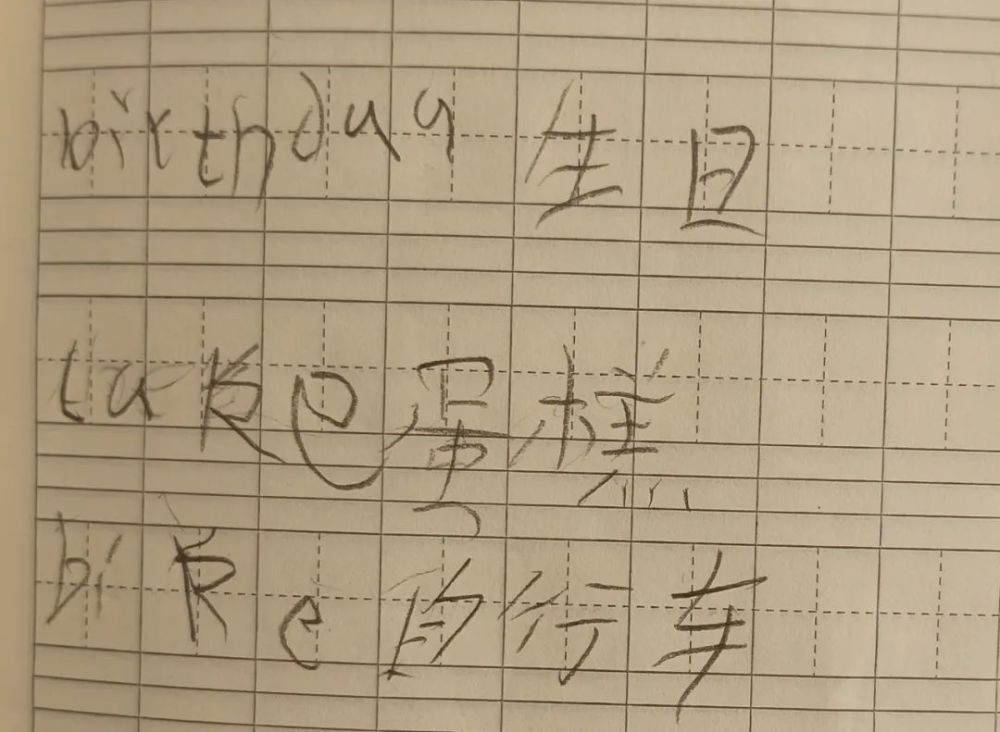 birthday 生日
cake 蛋糕
bike 自行车